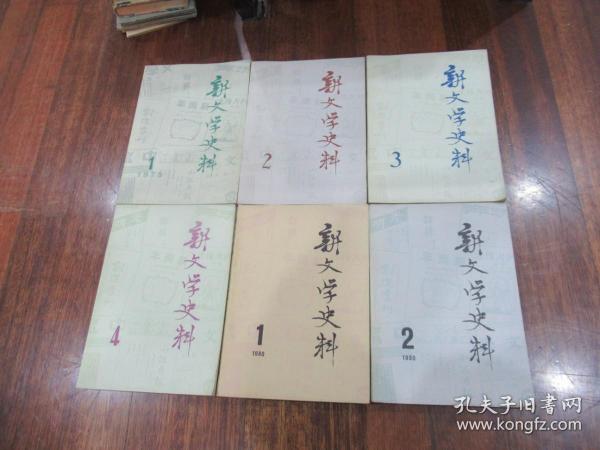 新文学史料
1
新文学史料
2
新文学史料
3
新文学史料
4
新文学史料
1
1980
新文学史料
2
1980
孔夫子旧书网
www.kongfz.com